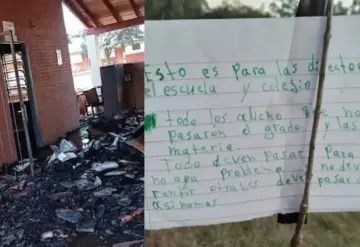 Esto es para las director
el escuela y colegio
todo los alicho que ho
pasaron el grado y las
materia.
Todo deven pasar Para
no apa problema no deve
rentir otrabes deve pasar
asinomas